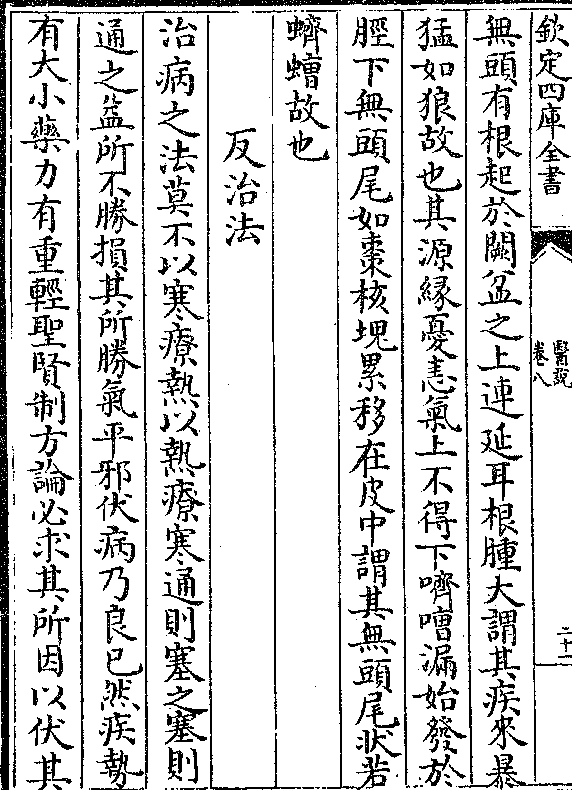 欽定四庫全書
醫說
卷八
二十二
無頭有根起於闕盆之上連延耳根腫大謂其疾來暴
猛如狼故也其源縁憂恚氣上不得下嚌嘈漏始發於
脛下無頭尾如棗核塊累移在皮中謂其無頭尾狀若
蠐螬故也
反治法
治病之法莫不以寒療熱以熱療寒通則塞之塞則
通之益所不勝損其所勝氣平邪伏病乃良已然疾勢
有大小藥力有重輕聖賢制方論必求其所因以伏其